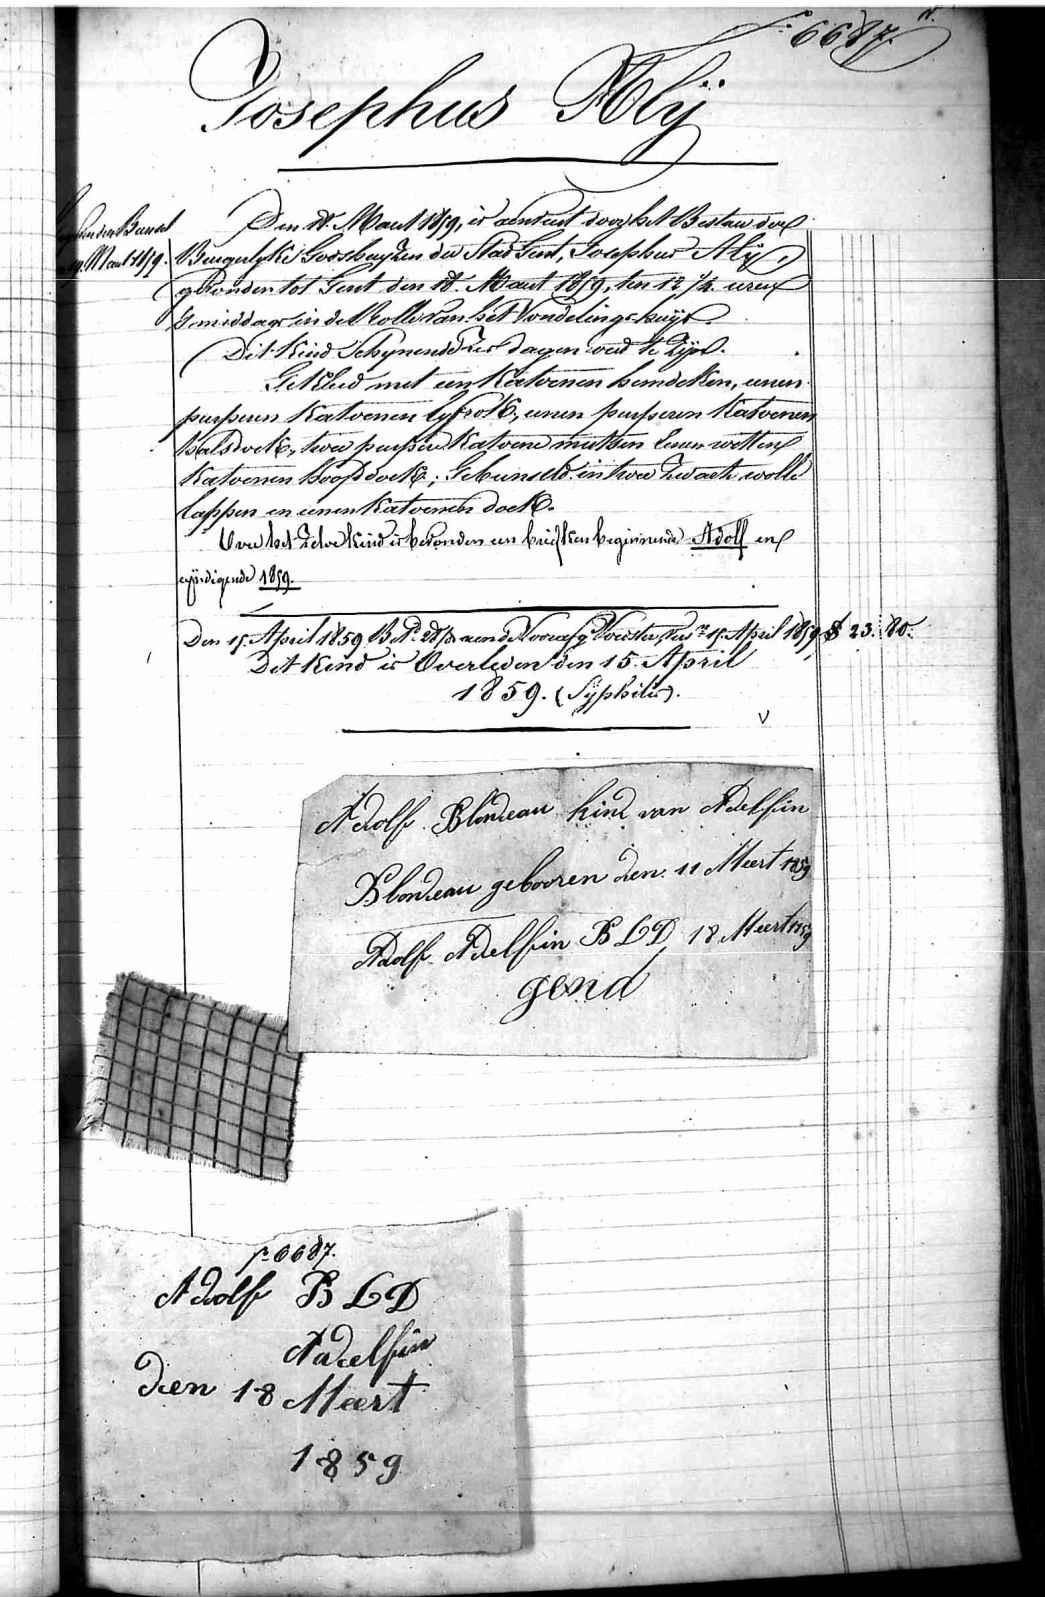 f.° 6687.
Josephus Alij
Den 18. Maart 1859, is aenveert door het Bestier der
Burgerlyke Godshuyzen der Stad Gent, Josephus Alij,
gevonden tot Gent den 18. Maart 1859, ten 12 1/2 uren
smiddags in de Rolle van het Vondelingshuys.
Dit Kind Schynende zes dagen oud te zijn.
Gekleed met een Katoenen hemdeken, eenen
purperen Katoenen lyfrok, eenen purperen Katoenen
halsdoek, twee purpere Katoene mutsen eenen witten
Katoenen hoofddoek; Gebunseld in twee zwarte wolle
lappen en eenen Katoenen doek.
Over het zelve Kind is bevonden een briefken beginnende Adolf en
eyndigende 1859.
Den 15. April 1859 April 1859 23. 80.
Dit Kind is Overleden den 15 April
1859. (Syphilis).
Adolf Blondeau kind van Adelfin
Blondeau gebooren den 11 Meert 1859
Adolf Adelfin B L D 18 Meert 1859
gend
f.° 6687.
Adolf B L D
Adelfin
den 18 Meert
1859